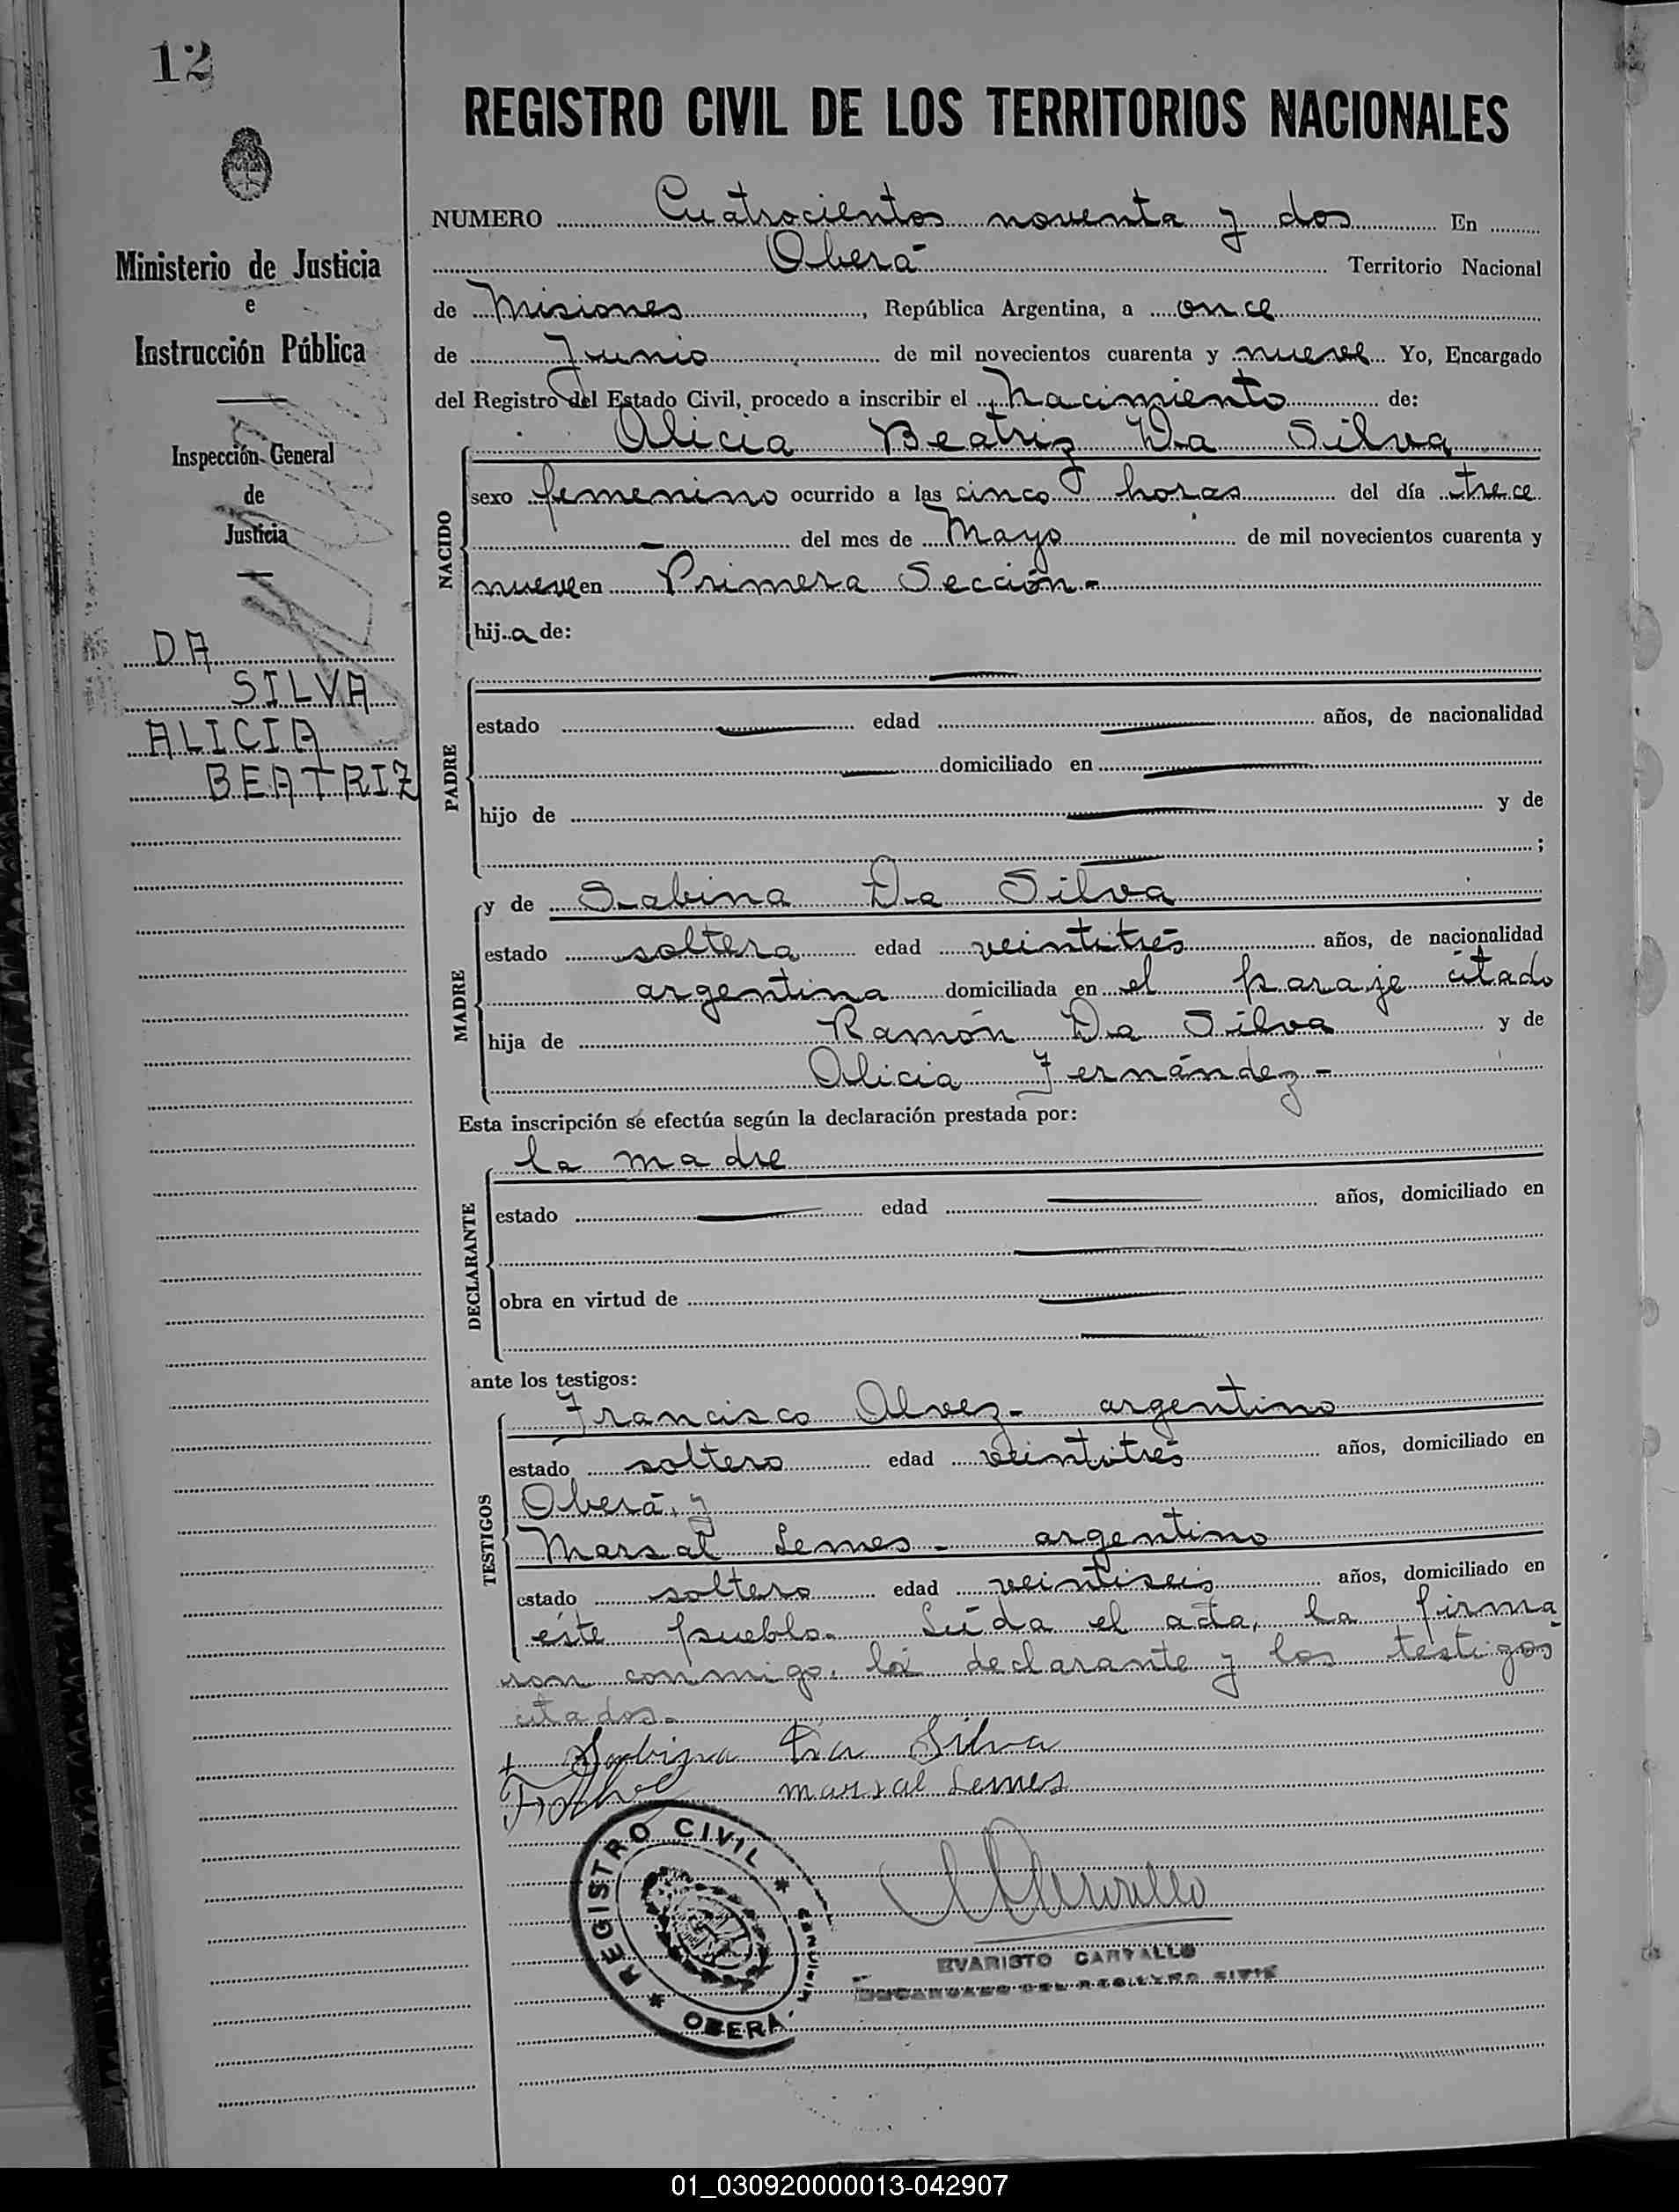 12
REGISTRO CIVIL DE LOS TERRITORIOS NACIONALES
Ministerio de Justicia
e
Instrucción Pública
Inspección General
de
Justicia
DA
SILVA
ALICIA
BEATRIZ
NUMERO Cuatrocientos noventa y dos En
Oberá Territorio Nacional
de Misiones, República Argentina, a once
de Junio de mil novecientos cuarenta y nueve Yo, Encargado
del Registro del Estado Civil, procedo a inscribir el Nacimiento de:
Alicia Beatriz Da Silva
NACIDO
sexo femenino ocurrido a las cinco horas del día trece
- del mes de Mayo de mil novecientos cuarenta y
nueve en Primera Sección.-
hija de:
PADRE
estado edad años, de nacionalidad
domiciliado en
hijo de y de
;
MADRE
y de Sabina Da Silva
estado soltera edad veintitrés años, de nacionalidad
argentina domiciliada en el paraje citado
hija de Ramón Da Silva y de
Alicia Fernández-
Esta inscripción se efectúa según la declaración prestada por:
la madre
DECLARANTE
estado edad años, domiciliado en
obra en virtud de
ante los testigos:
TESTIGOS
Francisco Alvez- argentino
estado soltero edad veintitrés años, domiciliado en
Oberá, y
Marsal Lemes - argentino
estado soltero edad veintiseis años, domiciliado en
éste pueblo. Leída el acta, la firma
ron conmigo, la declarante y los testigos
citados.-
+ Sabina Da Silva
marsal Lemes
REGISTRO CIVIL
OBERÁ
EVARISTO CARVALLO
ENCARGADO DEL REGISTRO CIVIL
01_030920000013-042907